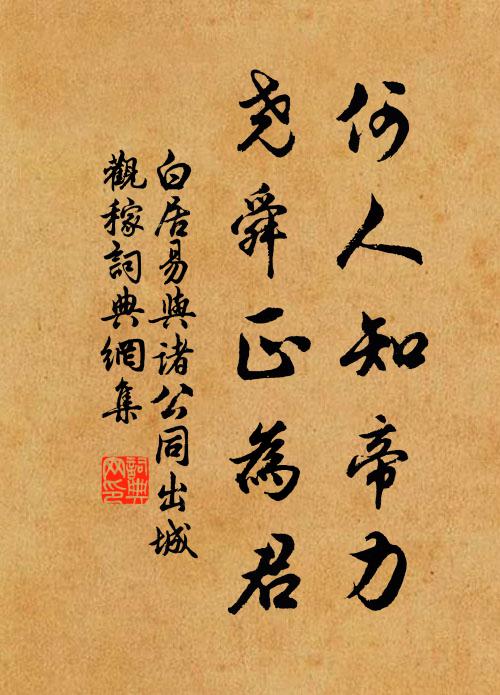 何人知帝力
尧舜正為君
白居易與諸公同出城
觀稼詞典網集
詞典
网印